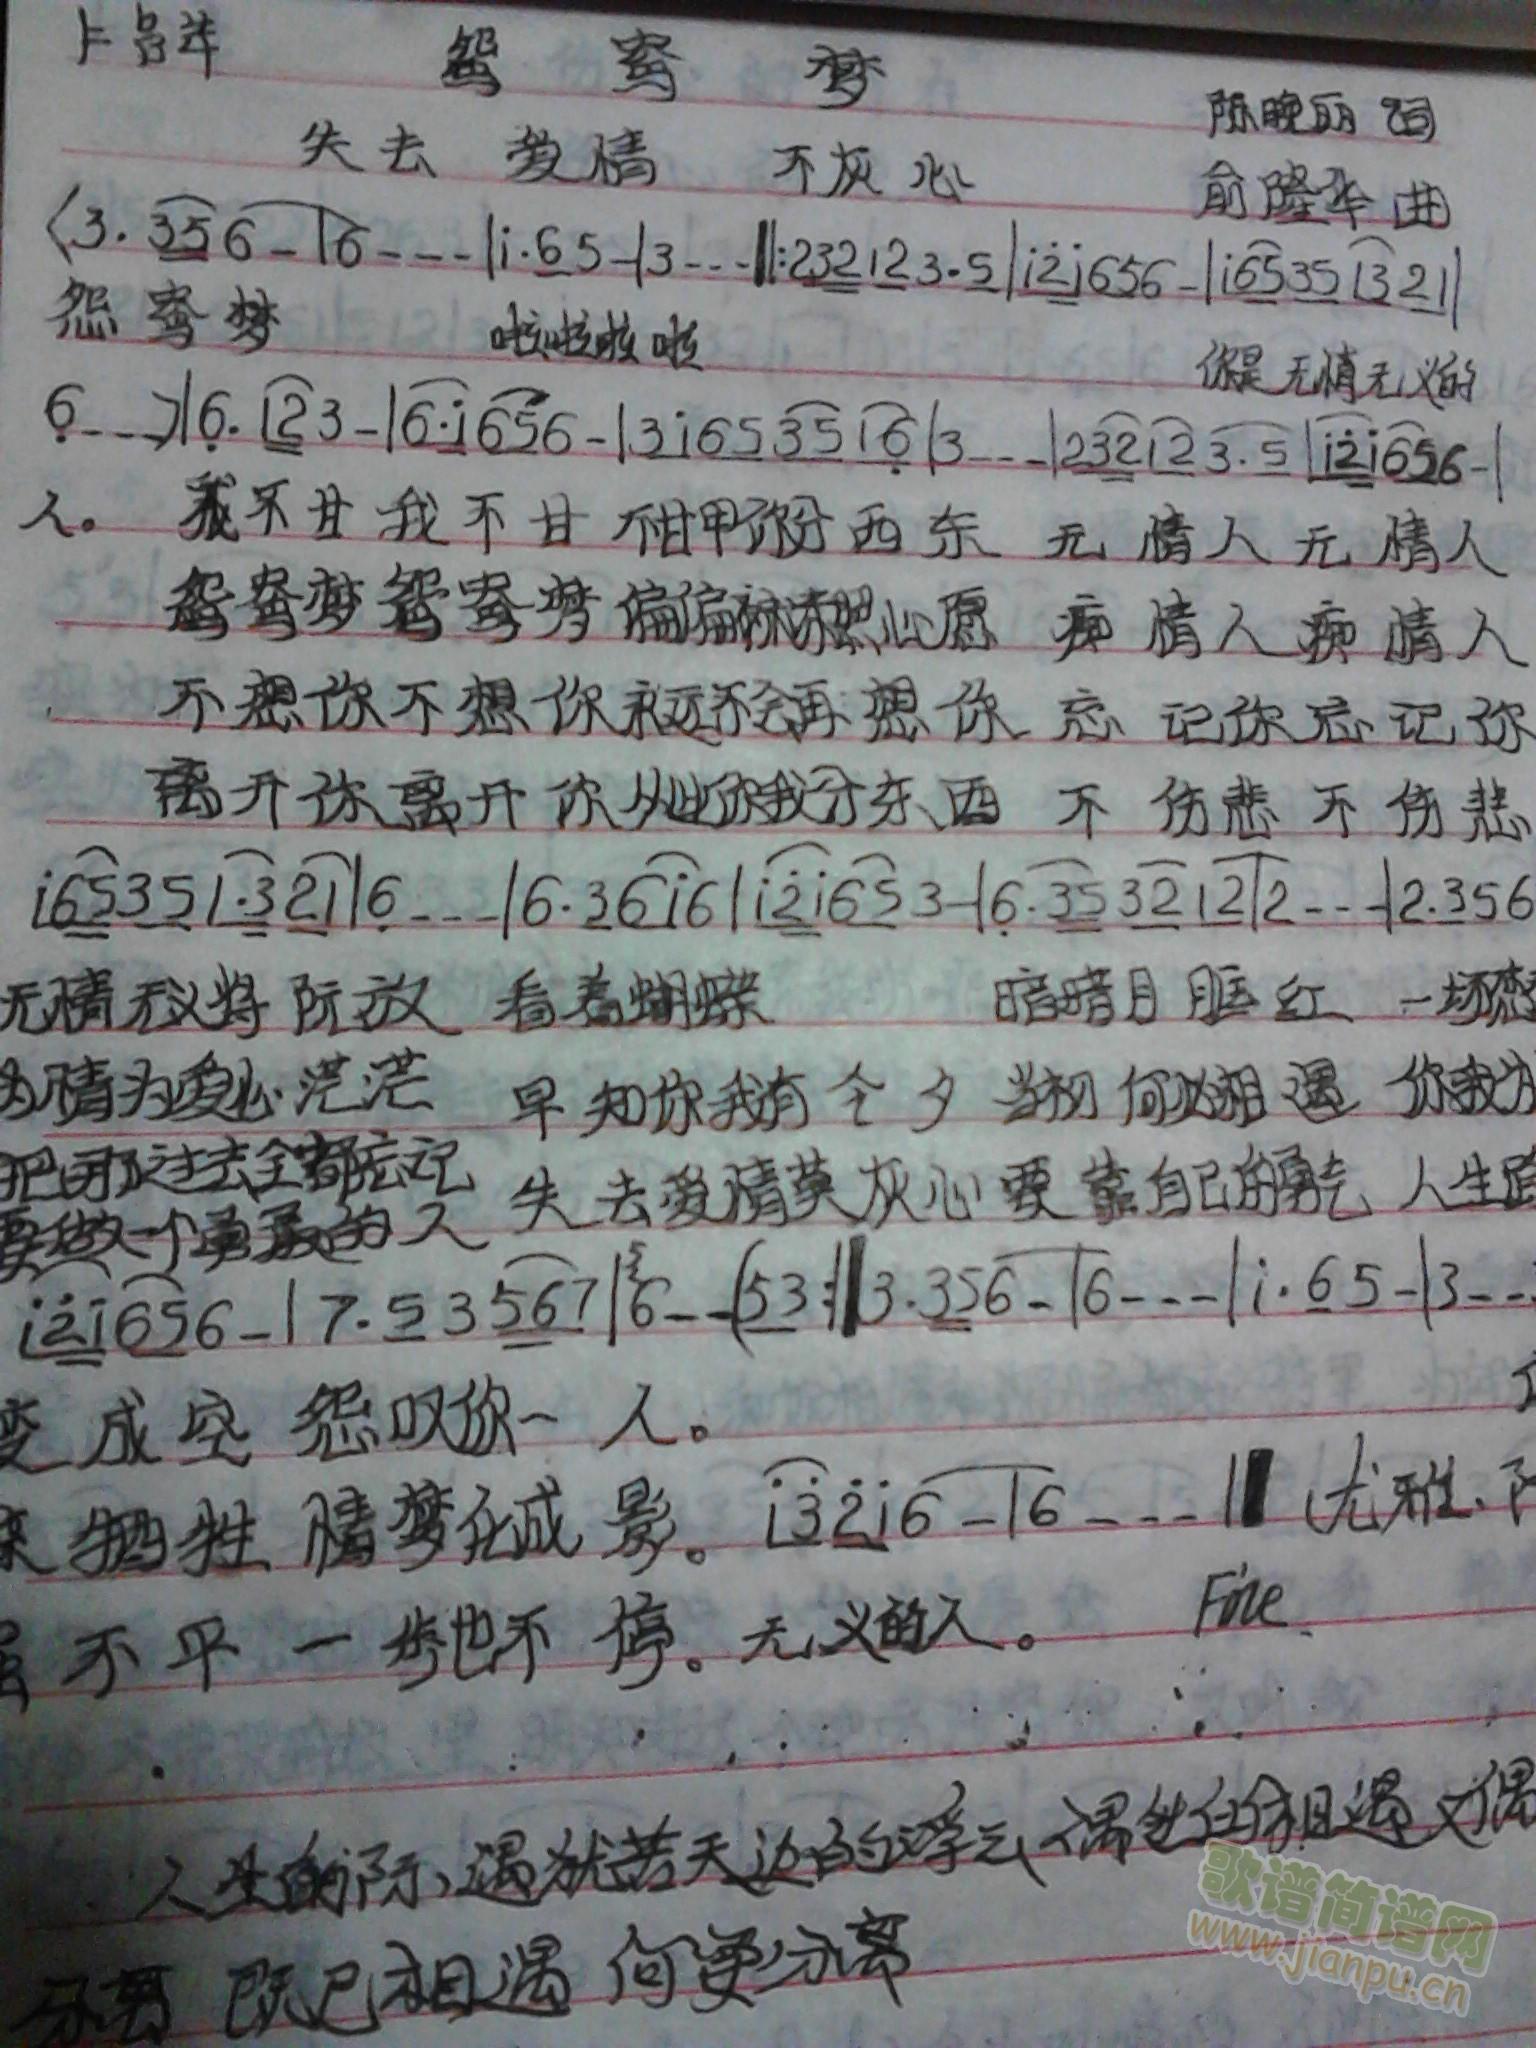 鸳鸯梦
陈晚丽 词
失去 爱情 不灰心
俞隆华 曲
3. 35 6 - | 6 - - - | i. 6 5 - | 3 - - - ‖: 232 12 3.5 | i2i 656 - | i65 35 13 21 |
怨鸯梦 啦啦啦啦 你是无情无义的
6 - - - ) | 6. 12 3 - | 6.i 656 - | 3i65 35 16 | 3 - - - | 232 12 3.5 | i2i 656 - |
人。 我不甘我不甘 你分西东 无情人无情人
鸳鸯梦鸳鸯梦偏偏 心愿 痴情人痴情人
不想你不想你永远不会再想你 忘记你忘记你
离开你离开你从此你我分东西 不伤悲不伤悲
i65 35 1.3 21 | 6 - - - | 6.3 6i6 | i2i 653 - | 6.35 32 12 | 2 - - - | 2.356
无情无义将 放 看着蝴蝶 暗暗月 红 一场
为情为爱心茫茫 早知你我有今夕 当初何必相遇 你我
把那过去全都忘记 失去爱情莫灰心要靠自己的勇气 人生
要做一个勇敢的人
i2i 656 - | 7.5 3 567 | 6 - - (53 :‖ 3.356 - | 6 - - - | i.65 - | 3 - - -
变成空 怨叹你一人。
牺牲 情梦化成影。 i32i6 - | 6 - - - ‖ (尤雅、
不平 一步也不停。无义的人。 Fine
人生的际遇犹若天边的浮云 偶 相遇又偶
分离 既已相遇 何要分离
歌谱简谱网
www.jianpu.cn